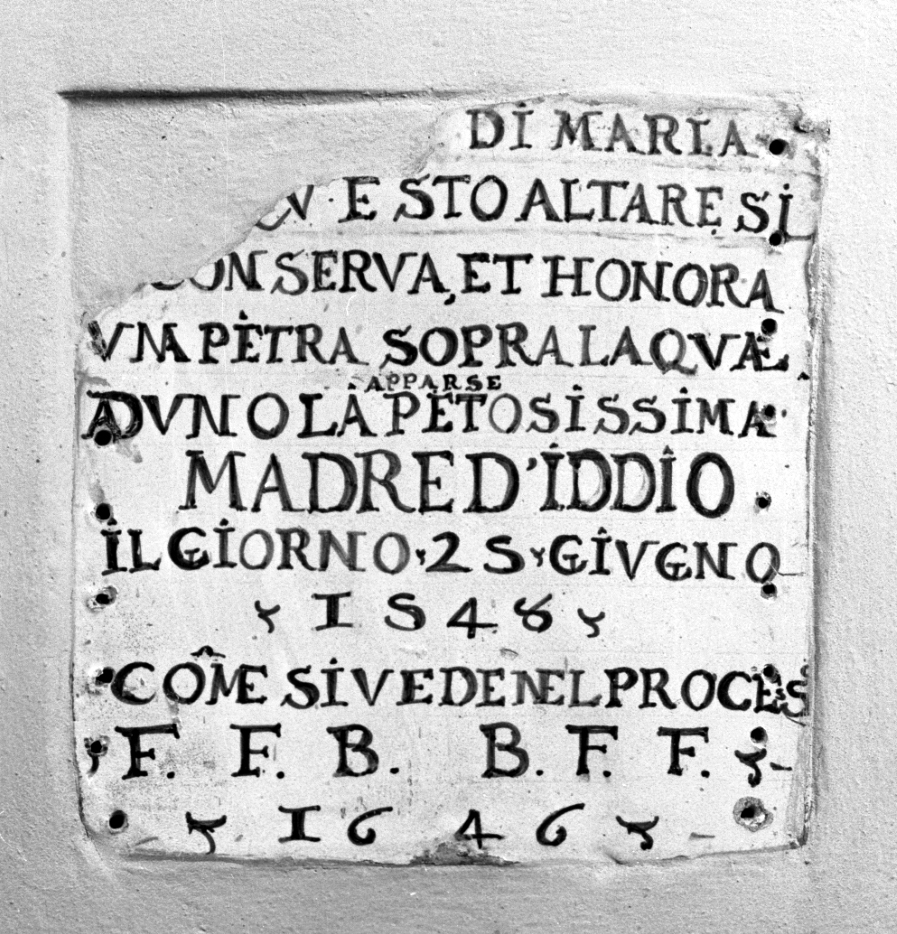 DI MARIA
QV·ESTO ALTARE SI
CONSERVA, ET HONORA
VNA PETRA SOPRA LA QVAE
APPARSE
AD VNO LÀ PETOSISSIMA
MADRE D'IDDIO
IL GIORNO 25 GIVGNO
1548
COME SI VEDE NEL PROCES
F. F. B. B. F. F.
1646